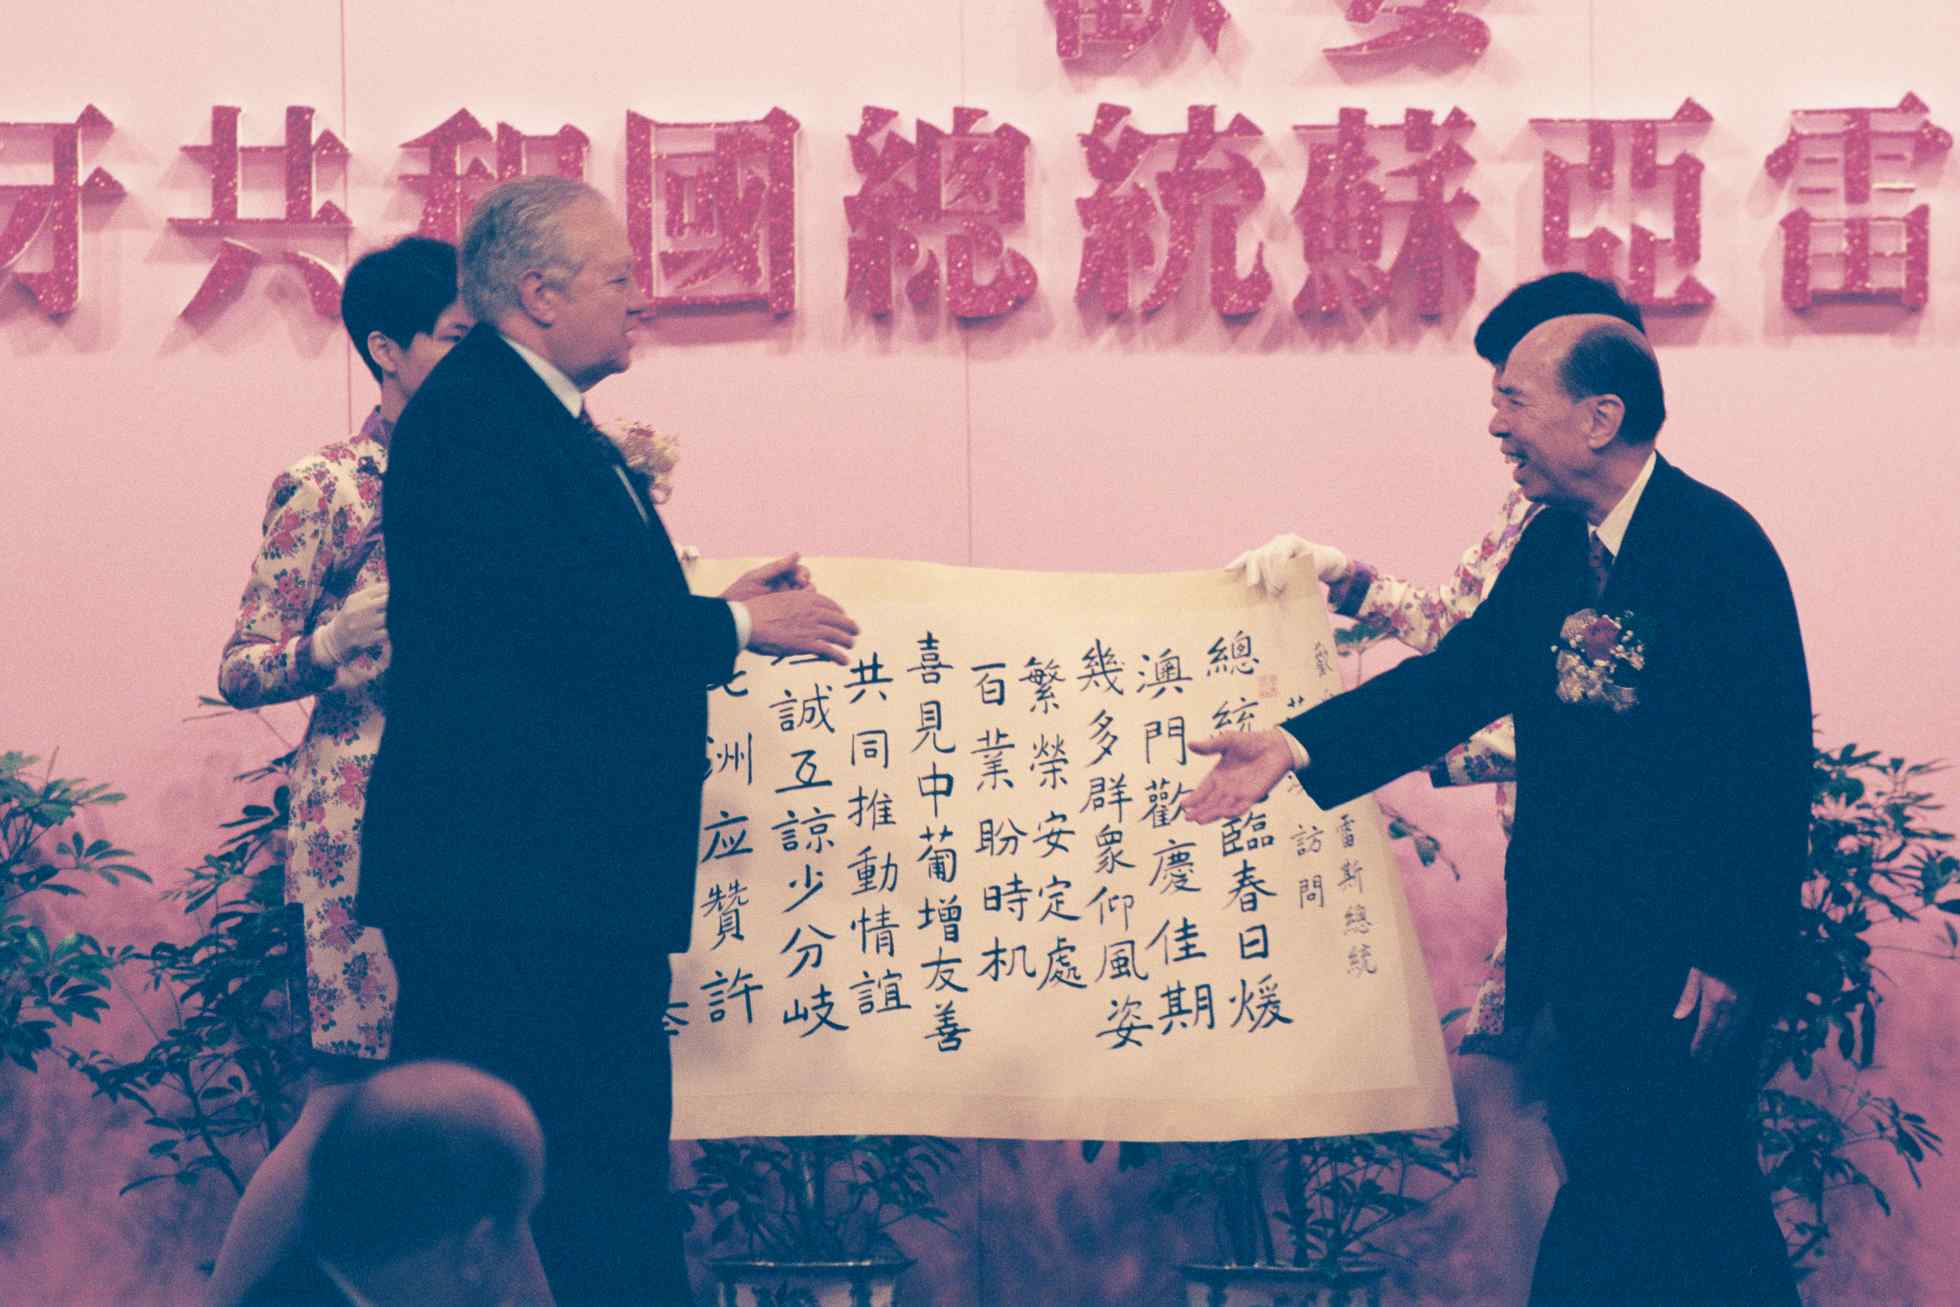 歡宴
牙共和國總統蘇亞雷
雷斯總統
訪問
總統臨春日煖
澳門歡慶佳期
幾多群眾仰風姿
繁榮安定處
百業盼時机
喜見中葡增友善
共同推動情誼
誠互諒少分岐
洲应贊許